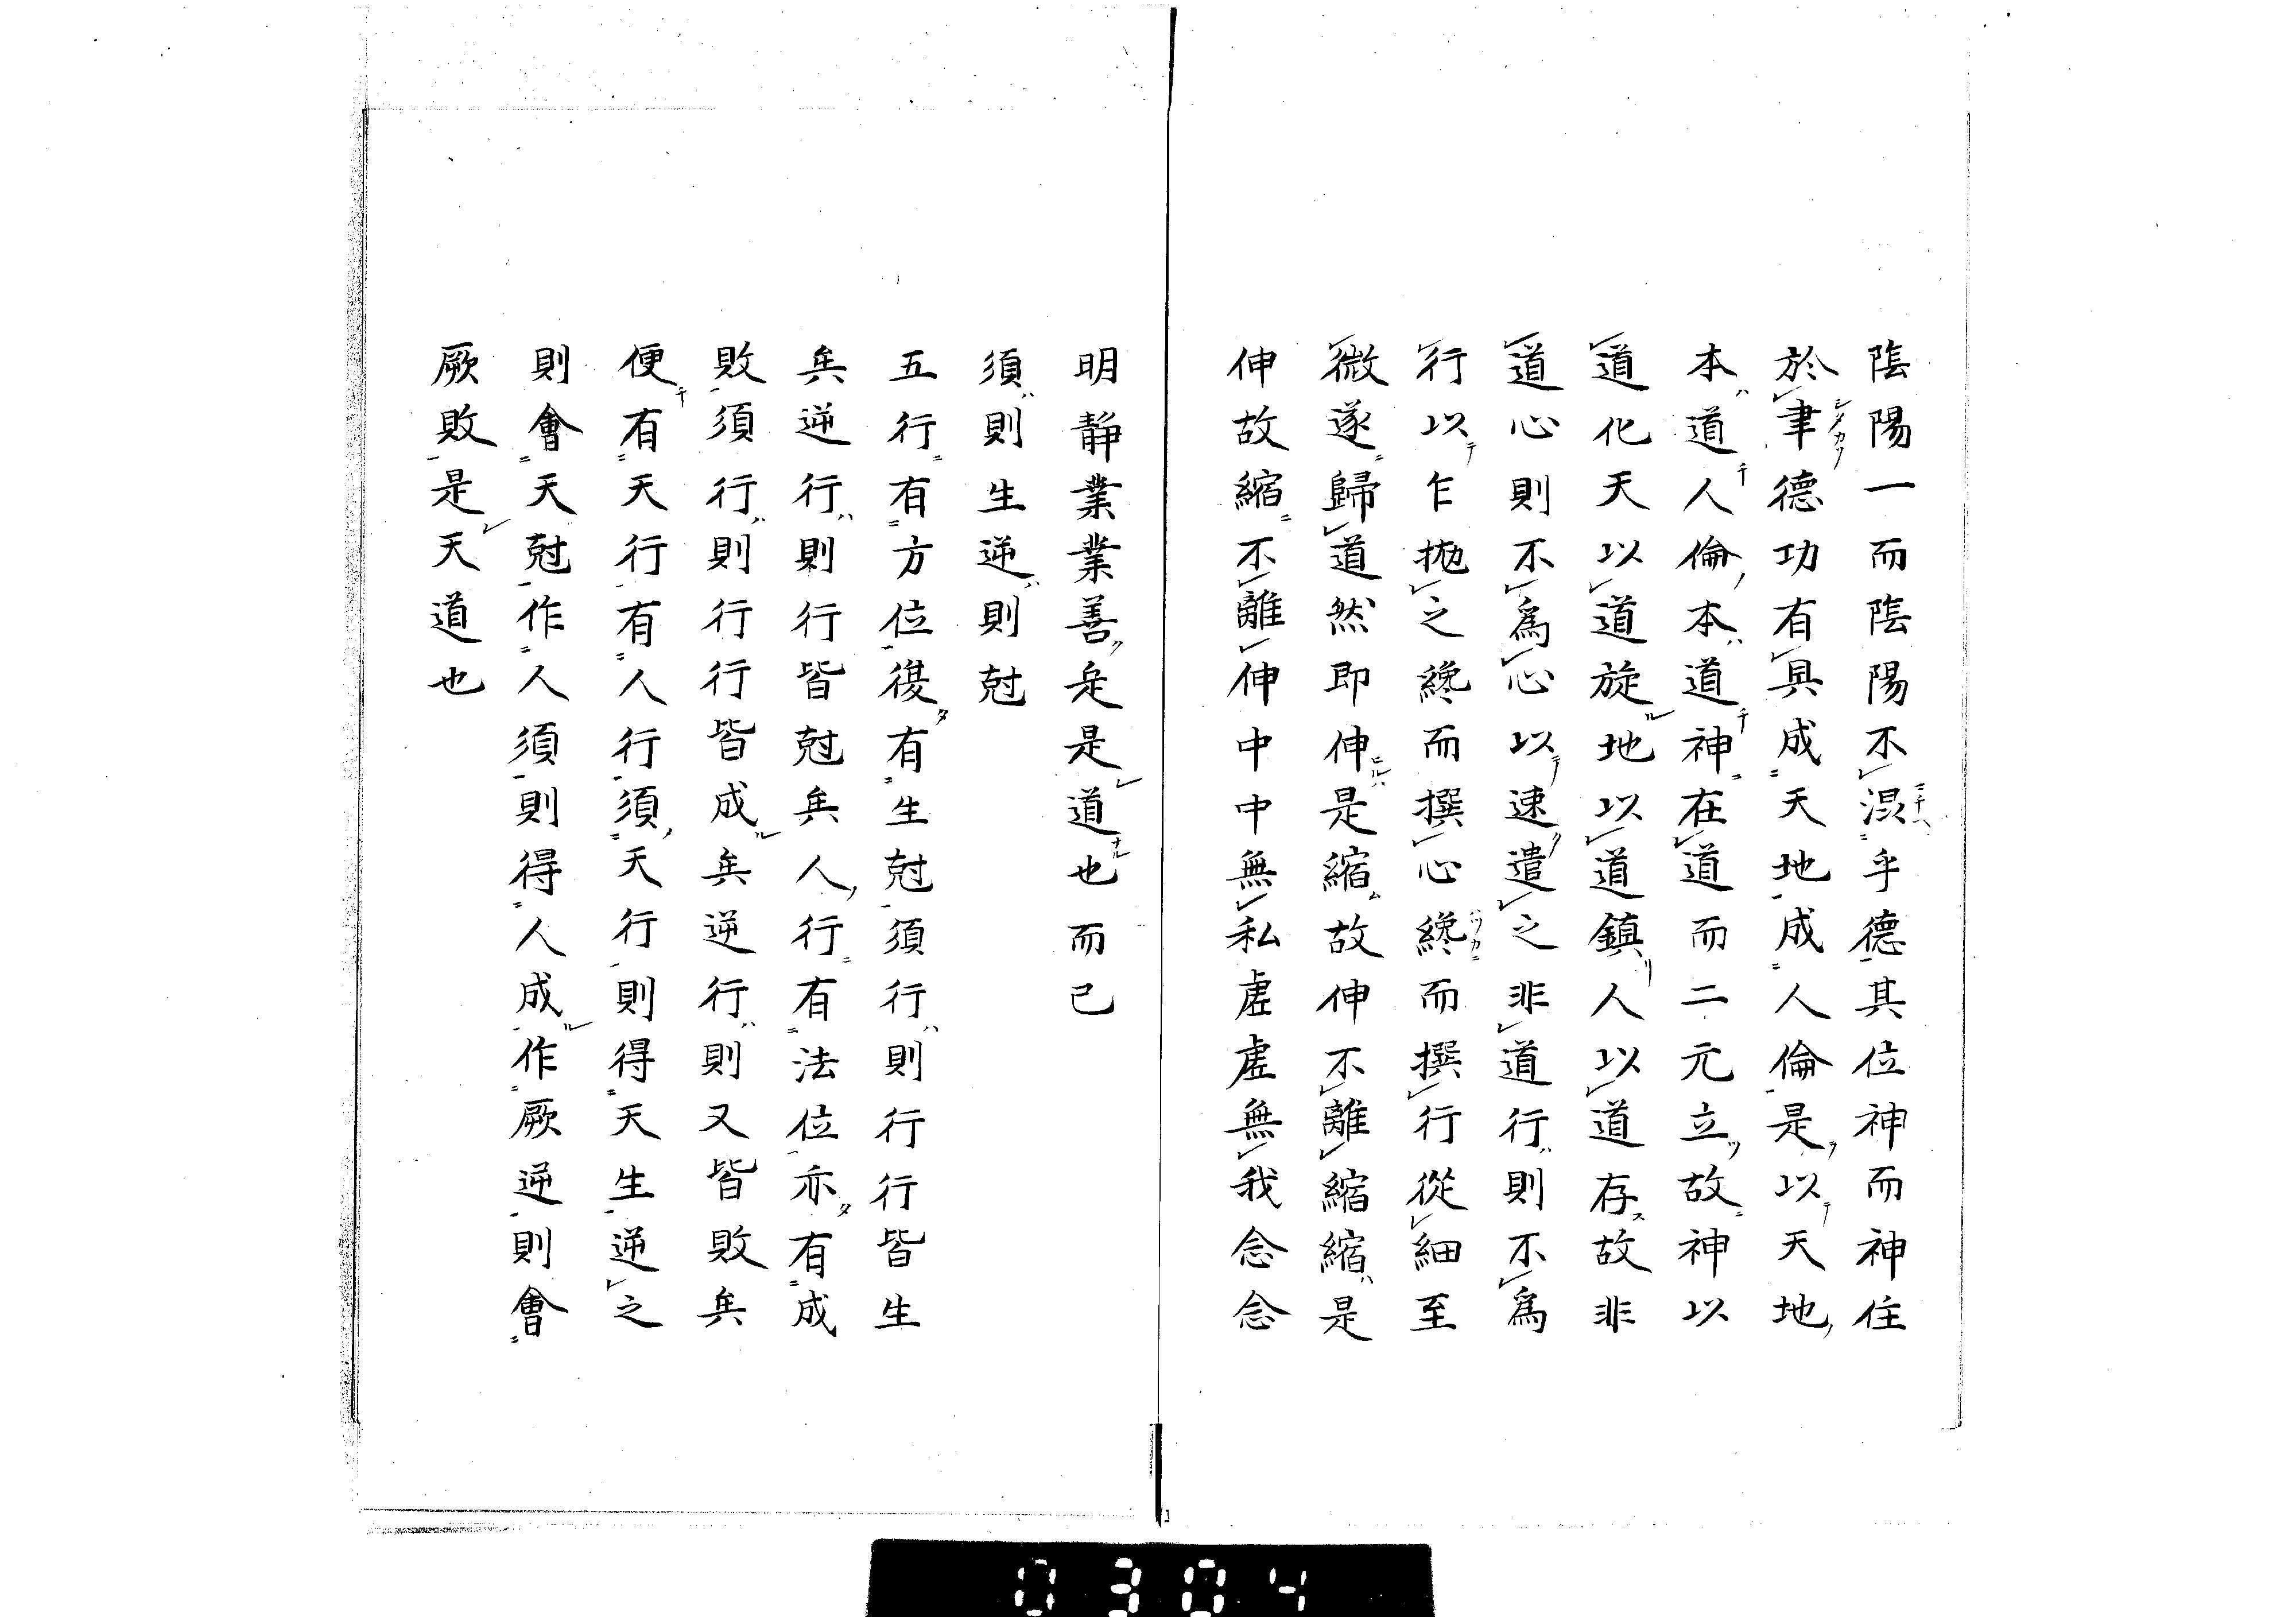 陰陽一而陰陽不混乎德其位神而神住
於聿德功有具成天地成人倫是以天地
本道人倫本道神在道而二元立故神以
道化天以道旋地以道鎮人以道存故非
道心則不為心以速遣之非道行則不為
行以乍拋之纔而撰心纔而撰行從細至
微遂歸道然即伸是縮故伸不離縮縮是
伸故縮不離伸中中無私虛虛無我念念
明静業業善是是道也而已
須則生逆則尅
五行有方位復有生尅須行則行行皆生
矣逆行則行皆尅矣人行有法位亦有成
敗須行則行行皆成矣逆行則又皆敗矣
便有天行有人行須天行則得天生逆之
則會天尅作人須則得人成作厥逆則會
厥敗是天道也
0304